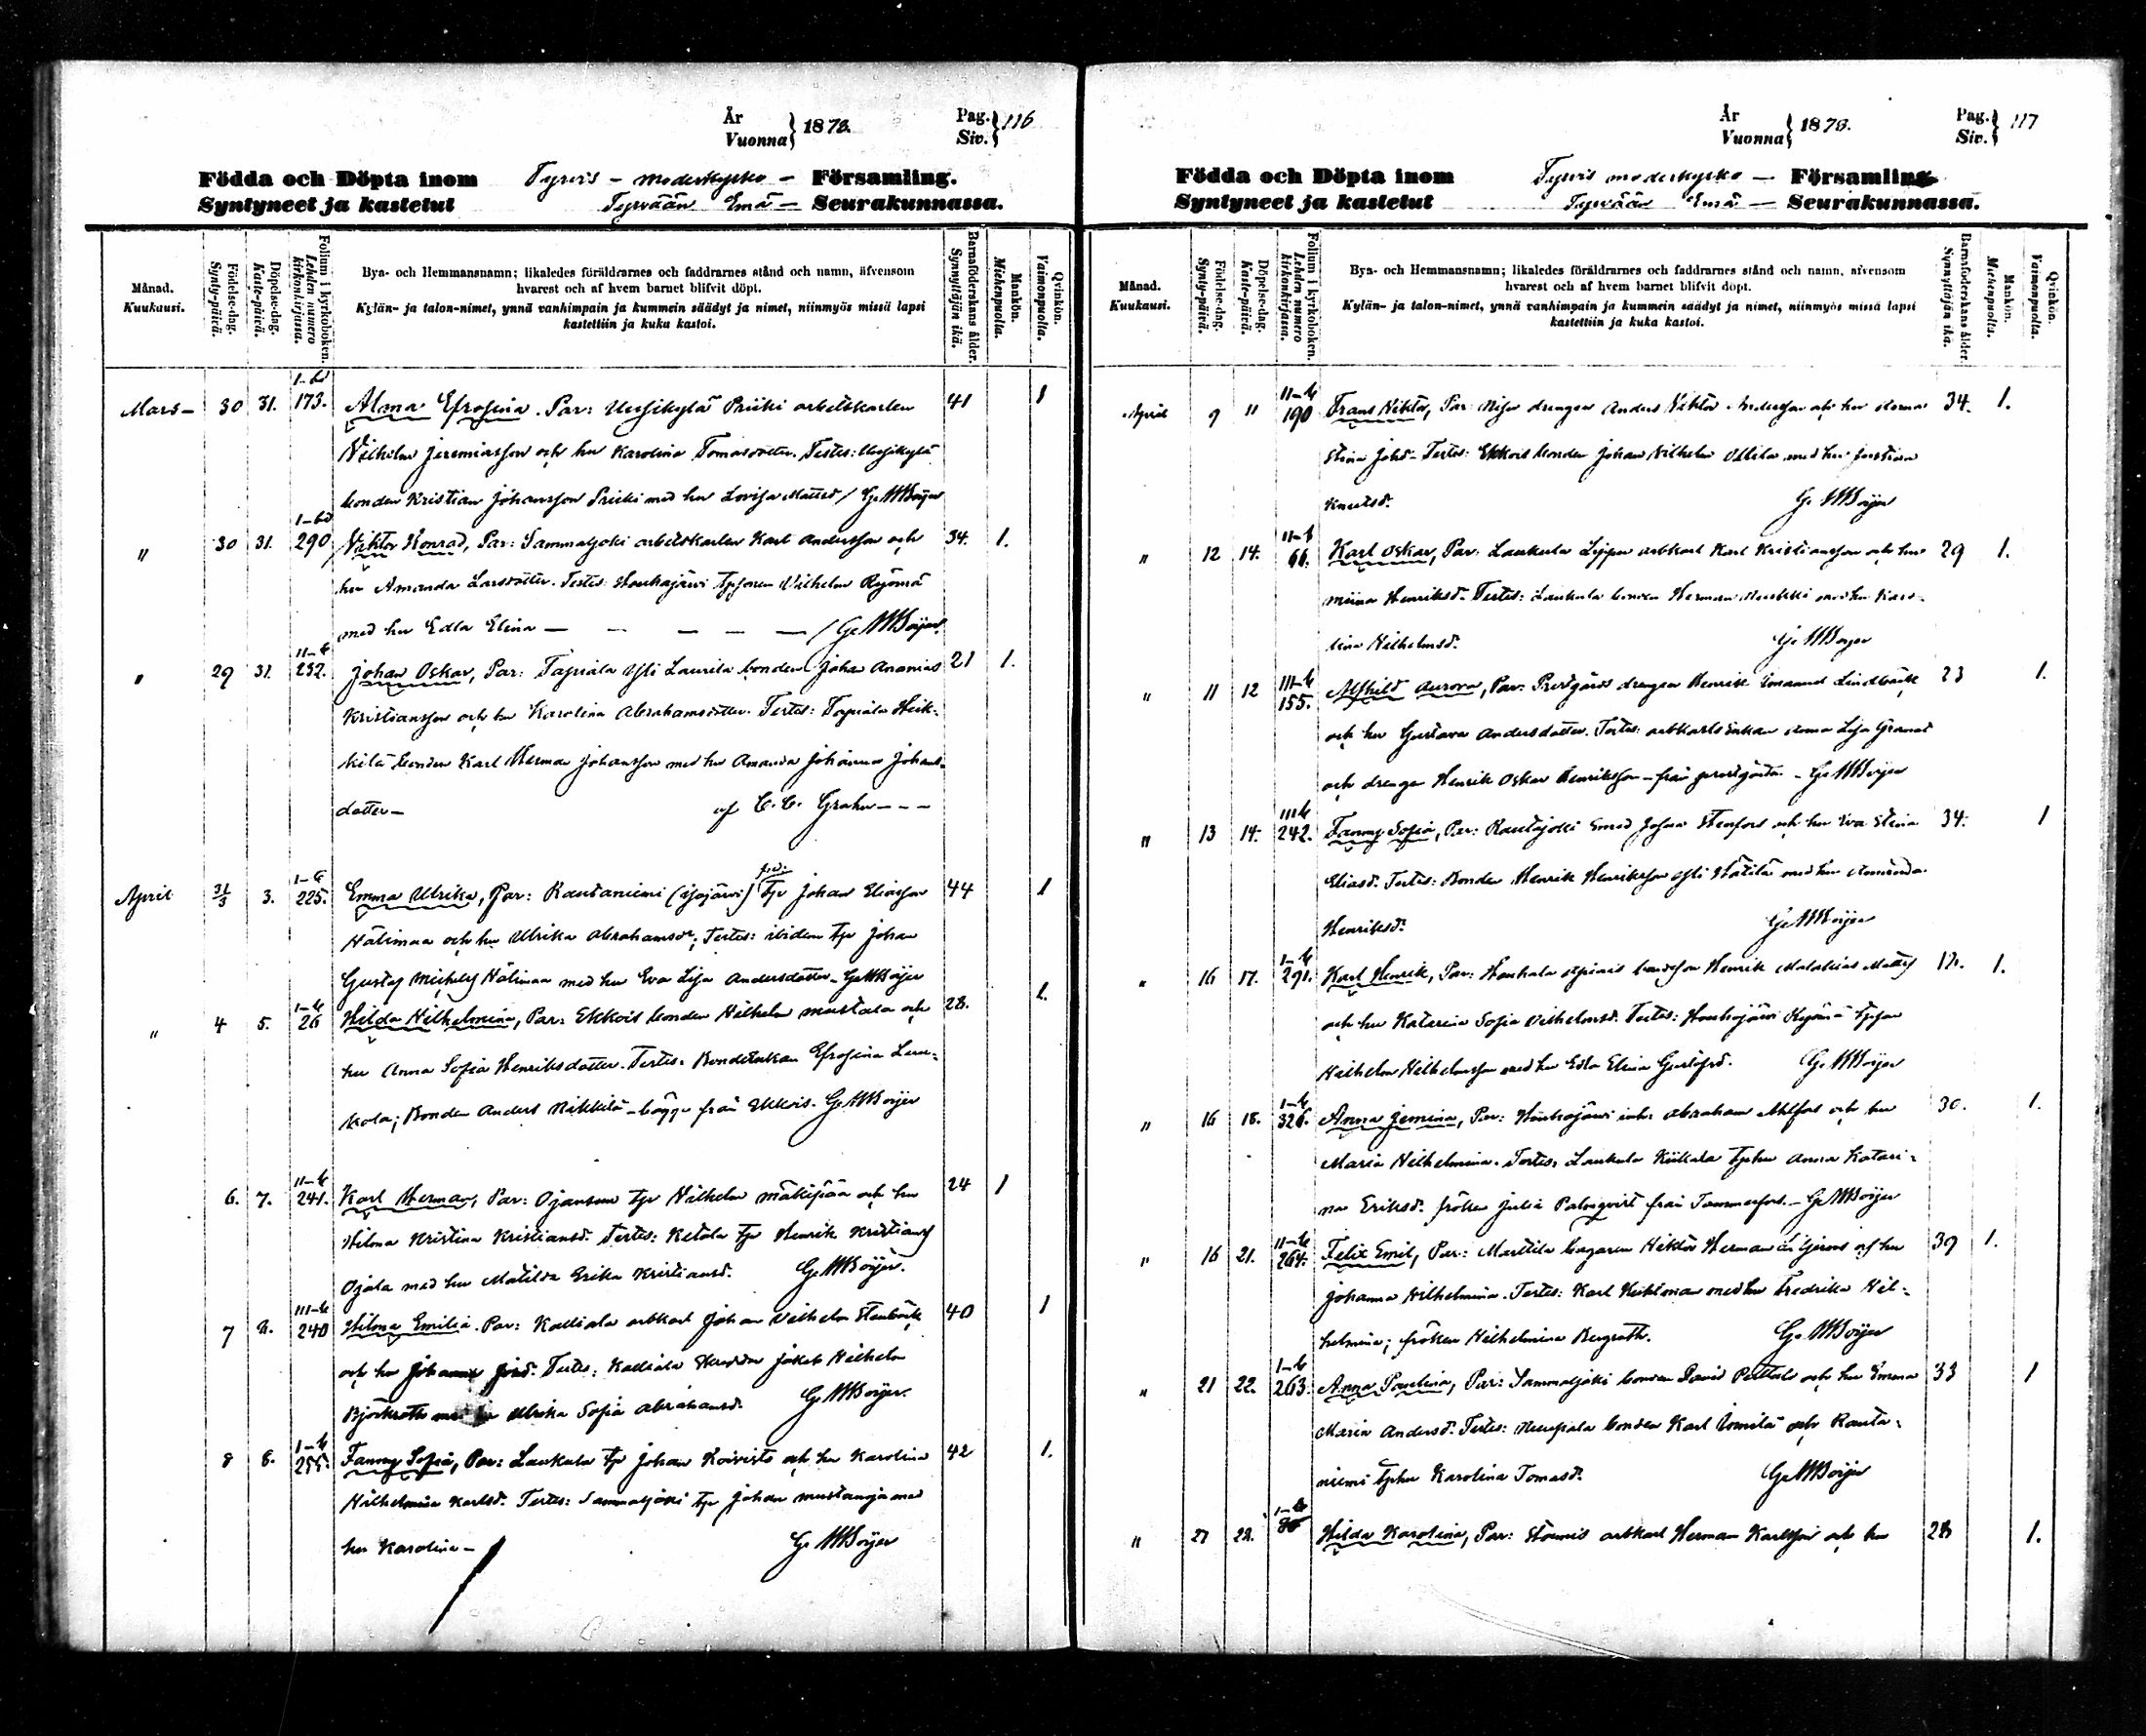 År
Vuonna } 1878.
Pag.
Siv. } 116
Födda och Döpta inom Tyrvis - moderkyrko - Församling.
Syntyneet ja kastetut Tyrvään Emä - Seurakunnassa.
Månad.
Kuukausi.
Födelse-dag.
Synty-päivä.
Döpelse-dag.
Kaste-päivä.
Folium i kyrkoboken.
Lehden numero kirkonkirjassa.
Bya- och Hemmansnamn; likaledes föräldrarnes och faddrarnes stånd och namn, äfvensom
hvarest och af hvem barnet blifvit döpt.
Kylän- ja talon-nimet, ynnä vanhimpain ja kummein säädyt ja nimet, niinmyös missä lapsi
kastettiin ja kuka kastoi.
Barnaföderskans ålder.
Synnyttäjän ikä.
Mankön.
Miehenpuolta.
Qvinkön.
Vaimonpuolta.
Mars - 30 31. 173. Alma Efrosina. Par: Uusikylä Priiki arbetskarlen 41 1
Vilhelm Jeremiasson och hu Karolina Tomasdotter. Testes: Uusikylä
bonden Kristian Johansson Priiki med hu Lovisa Mattsd / G. W Boijer
" 30 31. 290 Viktor Konrad, Par: Sammaljoki arbetskarlen Karl Andersson och 34. 1.
hu Amanda Larsdotter. Testes: Houhajärvi tpsonen Vilhelm Ryömä
med hu Edla Elina — — — — — / G. W Boijer
" 29 31. 232. Johan Oskar, Par: Tapiala Yli Laurila bonden Johan Ananias 21 1.
Kristiansson och hu Karolina Abrahamsdotter. Testes: Tapiala Heik-
kilä bonden Karl Herman Johansson med hu Amanda Johanna Johans-
dotter - af C. C. Grahn - - -
April 31/3 3. 225. Emma Ulrika, Par: Rautaniemi tp Johan Eliasson 44 1
och hu Ulrika Abrahamsdr; Testes: ibidem tp Johan
Gustaf med hu Eva Lisa Andersdotter - G W Boijer
" 4 5. 26 Hilda Vilhelmina, Par: Ekkois bonden Vilhelm Mustala och 28. 1.
hu Anna Sofia Henriksdotter. Testes: Bondeenkan Efrosina Lau-
kola; Bonden Anders Nikkilä - bägge från Ekkois. G W Boijer
6. 7. 241. Karl Herman, Par: Ojansuu tp Vilhelm Mäkipää och hu 24 1
Hilma Kristina Kristiansd. Testes: Ketola tp Henrik Kristianss
Ojala med hu Matilda Erika Kristiansd. G. W Boijer.
7 8. 240 Hilma Emilia. Par: Kalliala arbkarl Johan Vilhelm Stenbäck 40 1
och hu Johanna Testes: Kalliala Jakob Vilhelm
Björkroth med hu Ulrika Sofia Abrahamsd. G. W Boijer.
8 8. 255. Fanny Sofia, Par: Laukula tp Johan Koivisto och hu Karolina 42 1.
Vilhelmina Karlsd. Testes: Sammaljoki tp Johan Mustanoja med
hu Karolina - G. W Boijer
År
Vuonna } 1878.
Pag.
Siv. } 117
Födda och Döpta inom Tyrvis moderkyrko - Församling.
Syntyneet ja kastetut Tyrvään Emä - Seurakunnassa.
Månad.
Kuukausi.
Födelse-dag.
Synty-päivä.
Döpelse-dag.
Kaste-päivä.
Folium i kyrkoboken.
Lehden numero kirkonkirjassa.
Bya- och Hemmansnamn; likaledes föräldrarnes och faddrarnes stånd och namn, äfvensom
hvarest och af hvem barnet blifvit döpt.
Kylän- ja talon-nimet, ynnä vanhimpain ja kummein säädyt ja nimet, niinmyös missä lapsi
kastettiin ja kuka kastoi.
Barnaföderskans ålder.
Synnyttäjän ikä.
Mankön.
Miehenpuolta.
Qvinkön.
Vaimonpuolta.
April 9 11 190 Frans Viktor, Par: drengen Anders Viktor Andersson och hu 34. 1.
Stina Johd - Testes: Ekkois bonden Johan Vilhelm Ollila med hu Justina
Knutsd. G. W Boijer
" 12 14. 66. Karl Oskar, Par: Laukula arbkarl Karl Kristiansson och hu 29 1.
Miina Henriksd. Testes: Laukula bonden Herman med hu Karo-
lina Vilhelmsd. G. W Boijer
" 11 12 155. Alfhild Aurora, Par: Prestgårds drengen Henrik Emanuel Lindbäck 23 1.
och hu Gustava Andersdotter. Testes: arbkarls enkan Lisa Granat
och drengen Henrik Oskar Henriksson - från prestgården - G W Boijer
" 13 14. 242. Fanny Sofia, Par: Rautajoki Josua Stenfors och hu Eva Stina 34. 1
Eliasd. Testes: Bonden Henrik Henriksson Yli med hu Amanda
Henriksd. G. W Boijer
" 16 17. 291. Karl Henrik, Par: Houhala bondeson Henrik Malakias Mattss 1.
och hu Katarina Sofia Vilhelmsd. Testes: Houhajärvi Ryömä tpson
Vilhelm Vilhelmsson med hu Edla Elina Gustafsd. G. W Boijer
" 16 18. 326. Anna Jemina, Par: Houhajärvi inh. Abraham Ahlfors och hu 30. 1.
Maria Vilhelmina. Testes: Laukula tphu Anna Katari-
na Eriksd. fröken Julia Palmqvist från Tammerfors - G W Boijer
" 16 21. 264. Felix Emil, Par: Marttila bagaren Viktor Herman och hu 39 1.
Johanna Vilhelmina. Testes: Karl Heikloman med hu Fredrika Vil-
helmina; fröken Vilhelmina Bergroth. G. W Boijer
" 21 22. 263. Anna Paulina, Par: Sammaljoki bonden David Pettulo och hu Emma 33 1
Maria Andersd. Testes: bonden Karl och Rauta-
niemi tphu Karolina Tomasd. G. W Boijer
" 27 28. Hilda Karolina, Par: Stormis arbkarl Herman Karlsson och hu 28 1.